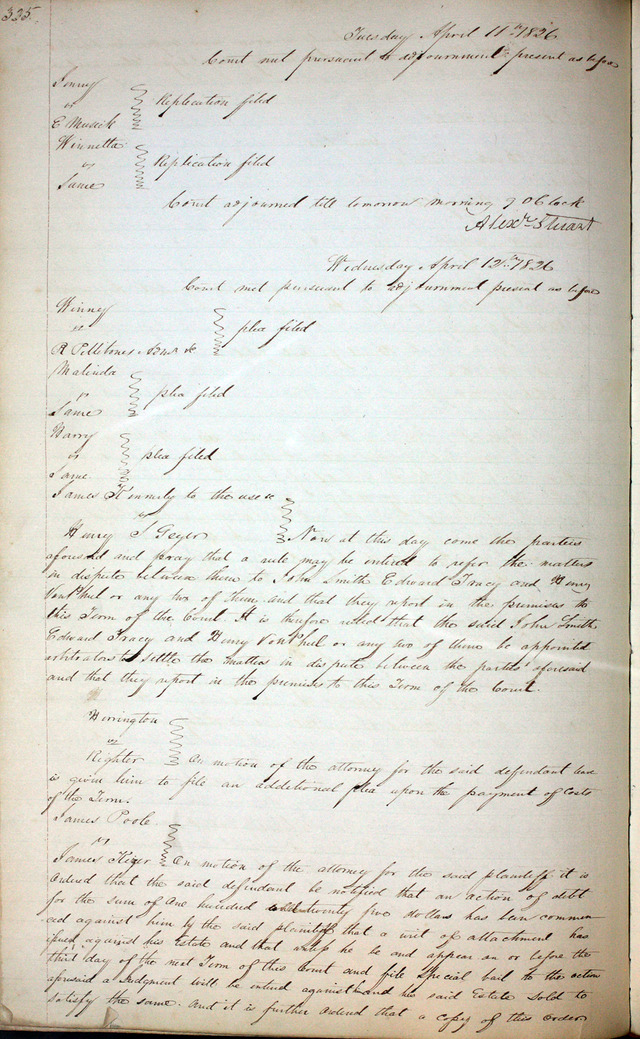 325.
Tuesday April 11th 1826
Court met pursuant to adjournment present as before
Jenny
vs
E Musick
Replication filed
Winnetta
vs
Same
Replication filed
Court adjourned till tomorrow morning 9 O Clock
Alexr Stuart
Wednesday April 12th 1826
Court met pursuant to adjournment present as before
Winney
vs
R Pettibones &c
plea filed
Malinda
vs
Same
plea filed
Harry
vs
Same
plea filed
James Kennerly to the use &c
vs
Henry S Geyer
Now at this day come the parties
aforesaid and pray that a rule may be entered to refer the matters
in dispute between them to John Smith Edward Tracy and Henry
VonPhul or any two of them, and that they report in the premises to
this Term of the Court. It is therefore ruled that the said John Smith
Edward Tracy and Henry VonPhul or any two of them be appointed
arbitrators to settle the matters in dispute between the parties aforesaid
and that they report in the premises to this Term of the Court.
Herrington
vs
Righter
On motion of the attorney for the said defendant leave
is given him to file an additional plea upon the payment of Costs
of the Term.
James Poole
vs
James
On motion of the attorney for the said plaintiff it is
Ordered that the said defendant be notified that an action of debt
for the sum of One hundred twenty five dollars has been commen
ced against him by the said plaintiff that a writ of attachment has
issued against his Estate and that unless he be and appear on or before the
third day of the next Term of this Court and file Special bail to the action
aforesaid a Judgment will be entered against him and his said Estate Sold to
satisfy the same. And it is further Ordered that a copy of this order